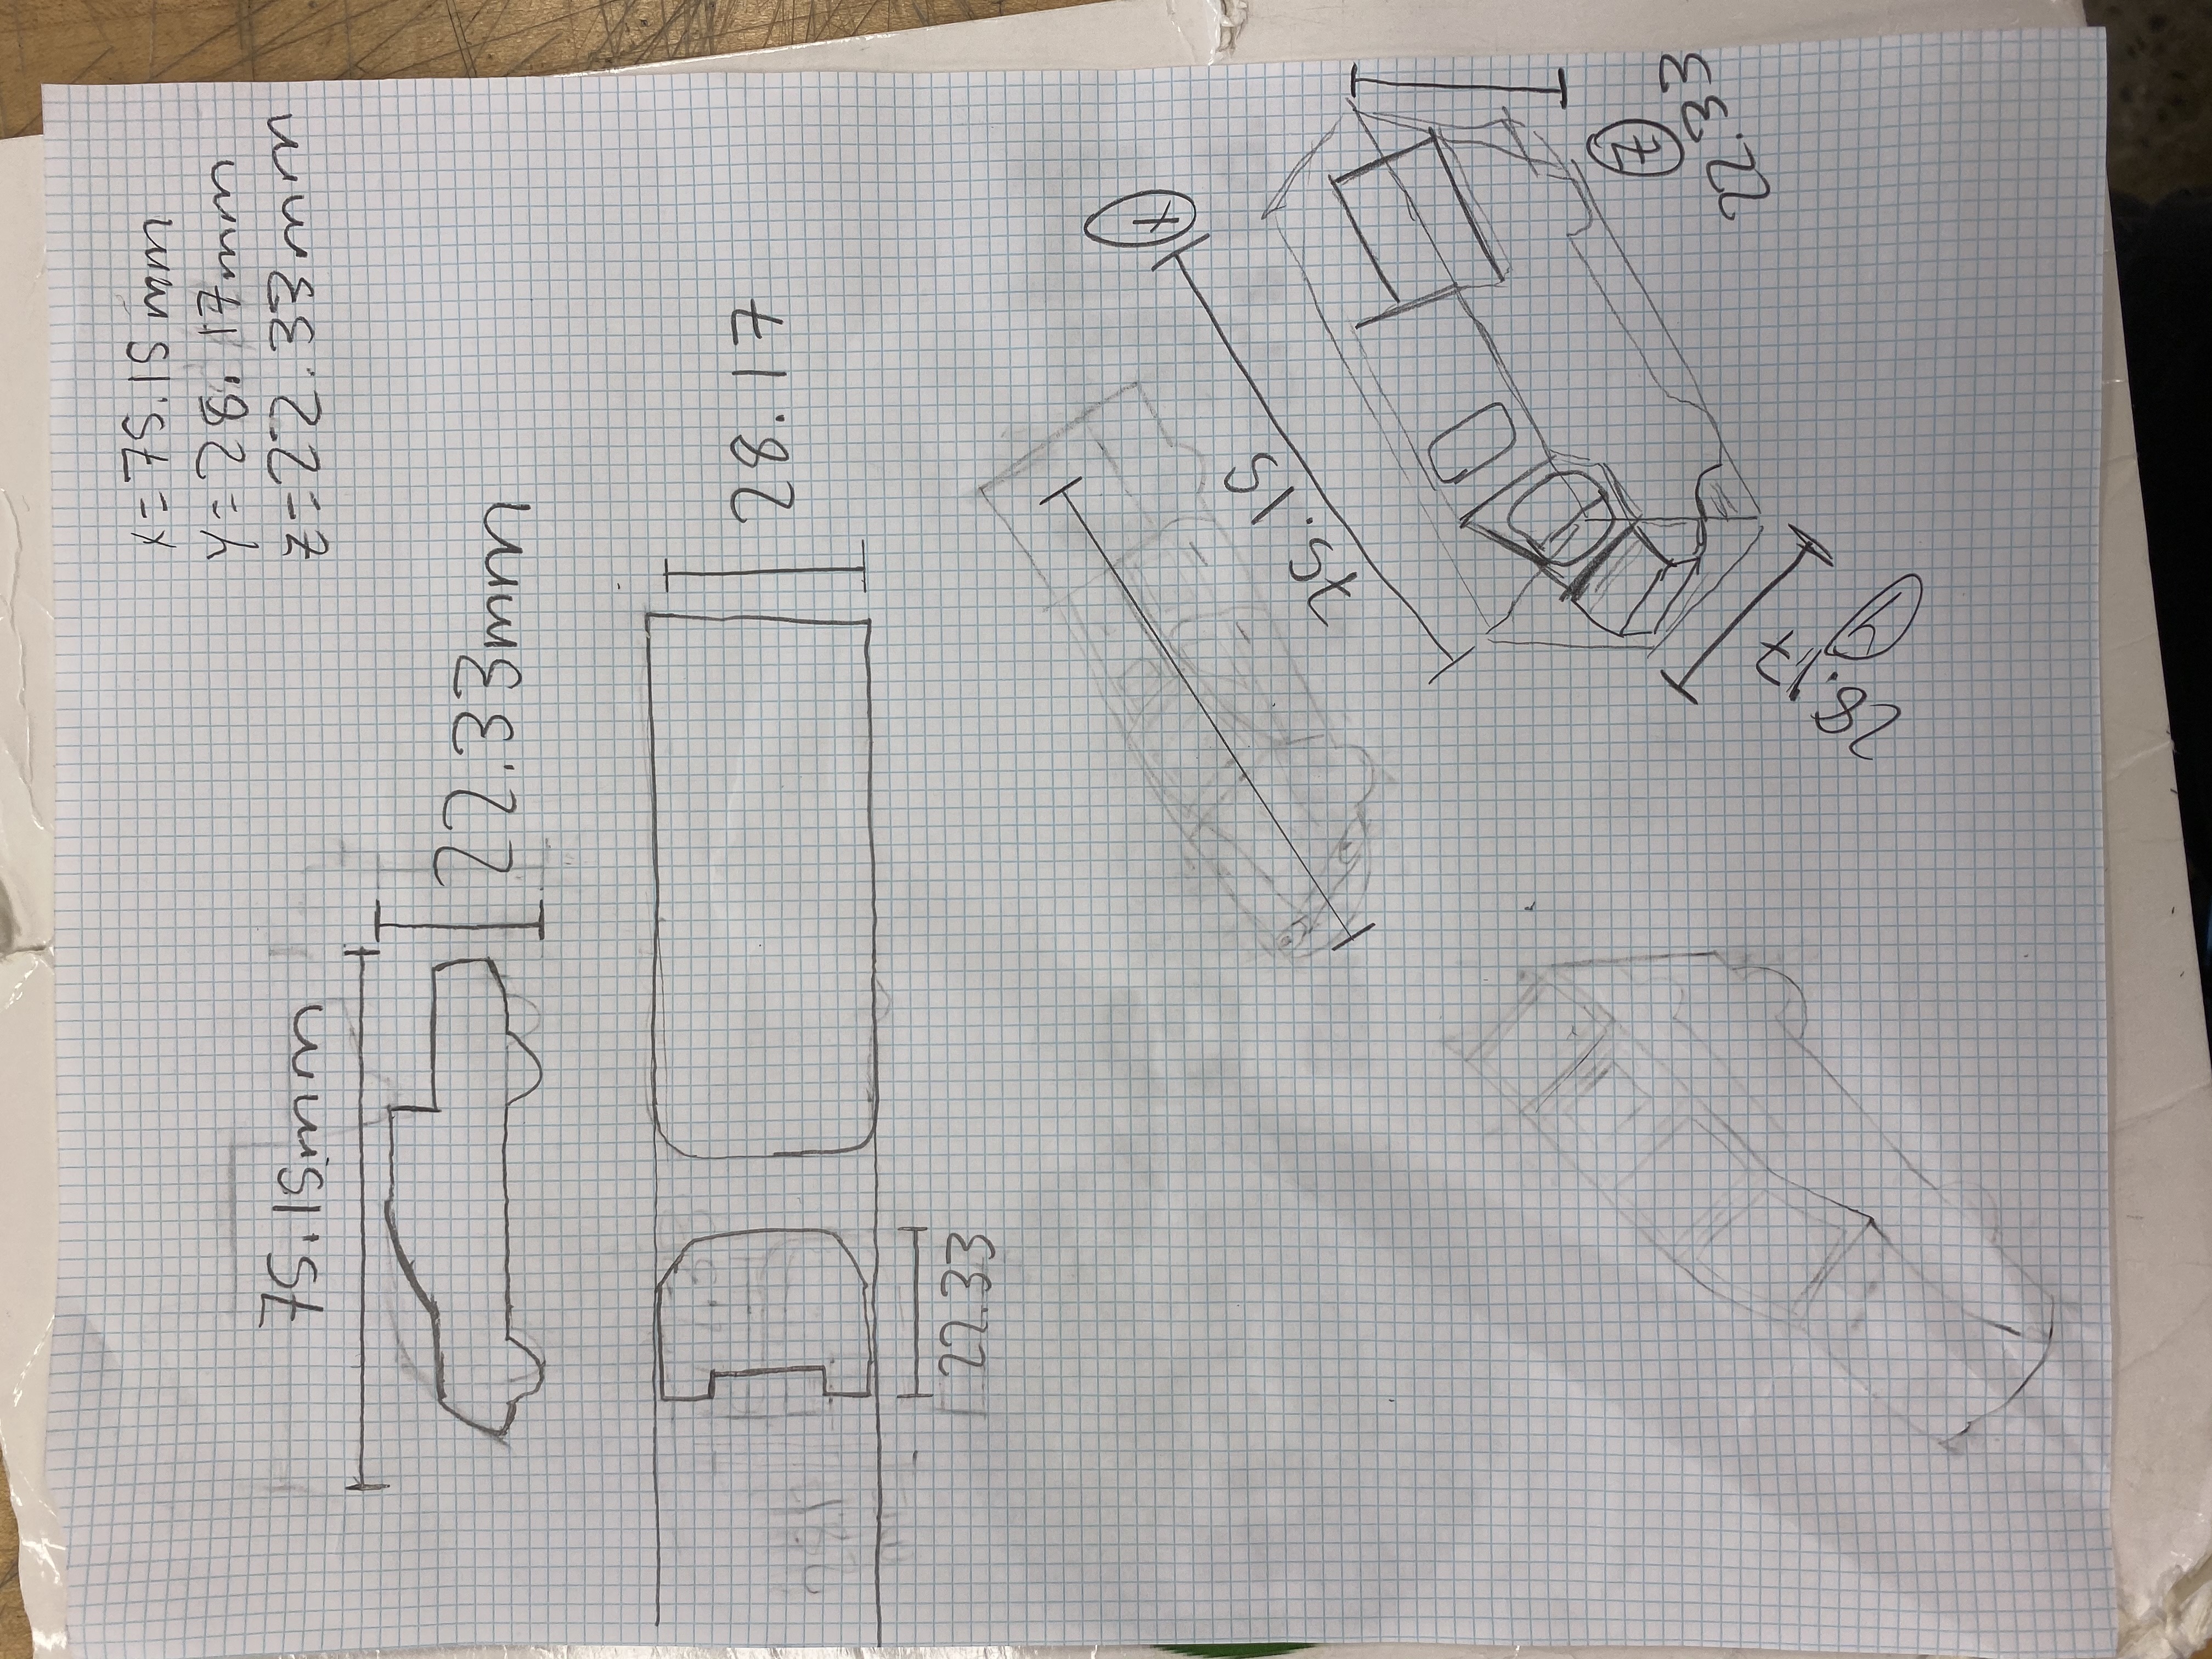 x=75.15mm
y=28.17mm
z=22.33mm
75.15mm
22.33mm
28.17
22.33
x
75.15
z
22.33
28.17
y